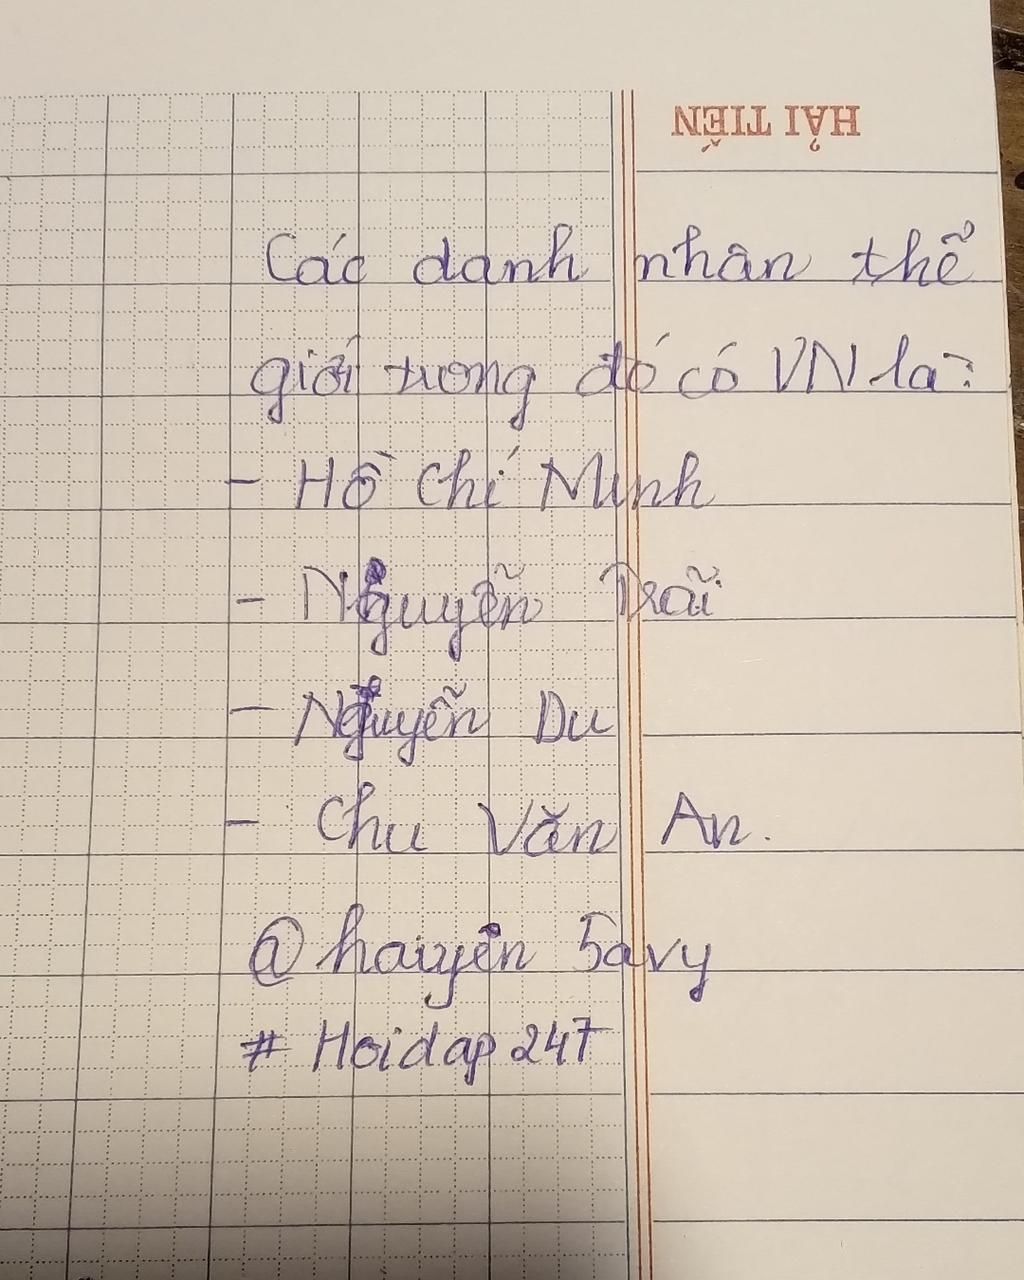 HẢI TIẾN
Các danh nhân thể
giới trong đó có VN là:
- Hồ Chí Minh
- Nguyễn Trãi
- Nguyễn Du
- Chu Văn An.
@ haiyen 5avy
# Hoidap 247